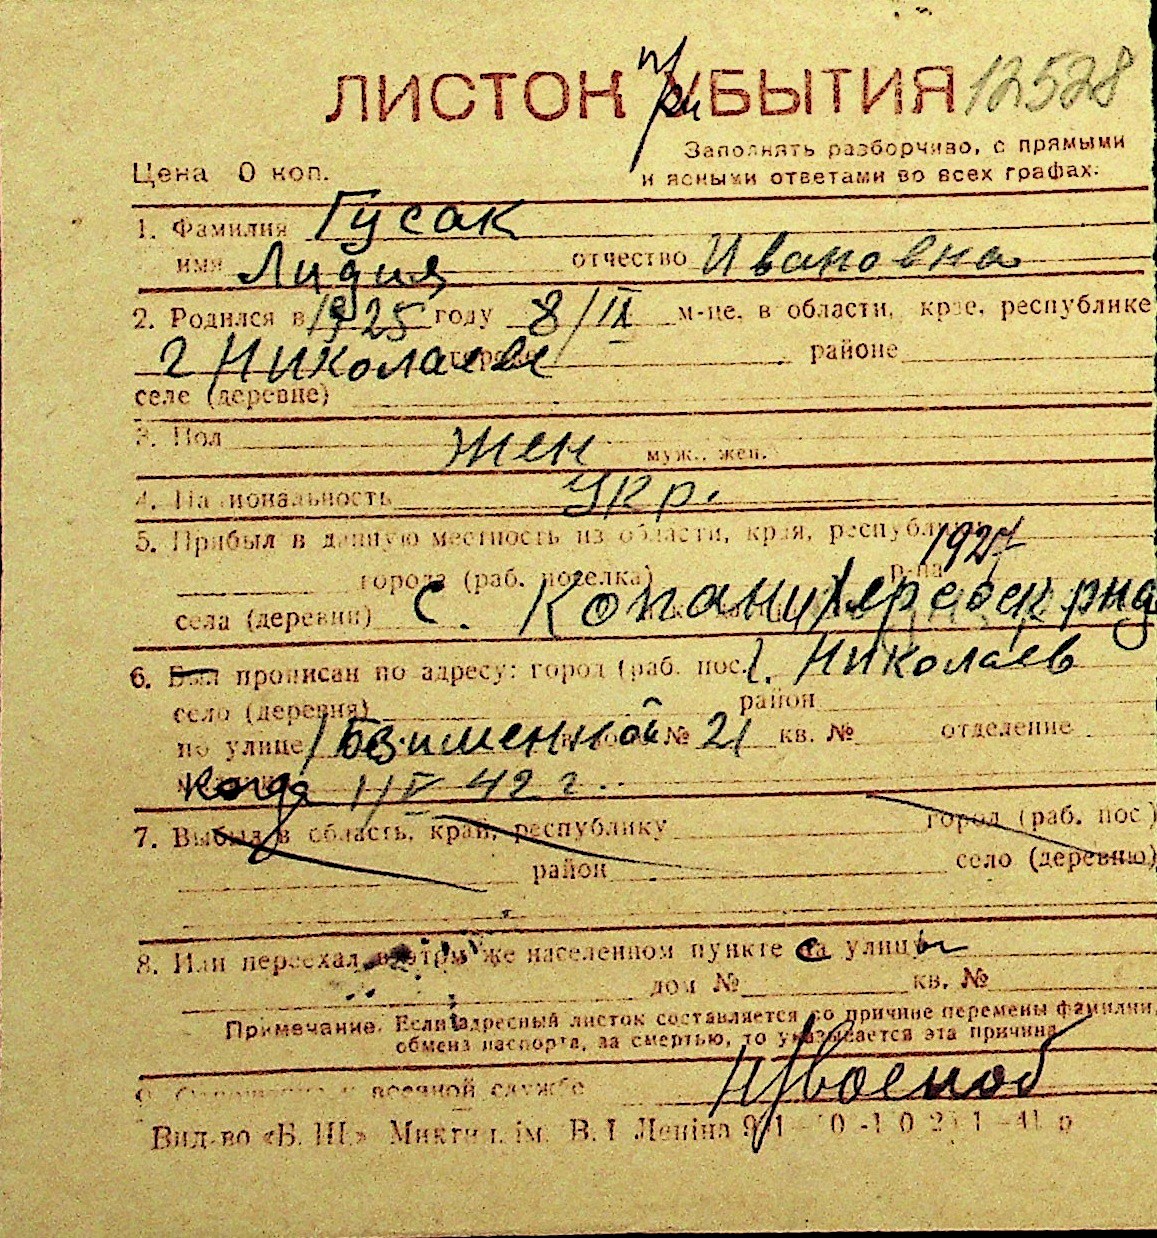 ЛИСТОК прибЫТИЯ 12528
Цена 0 коп.
Заполнять разборчиво, с прямыми
и ясными ответами во всех графах.
1. Фамилия Гусак
имя Лидия отчество Ивановна
2. Родился в 1925 году 8/IX м-це, в области, крае, республике
г Николаев районе
селе (деревне)
3. Пол жен муж., жен.
4. Национальность Укр.
5. Прибыл в данную местность из области, края, республики 192
города (раб. поселка) р-на
села (деревни) с. Копани
6. Был прописан по адресу: город (раб. пос. г. Николаев
село (деревня) район
по улице Безименной № 21 кв. № отделение
когда 1/IV 42 г.
7. Выбыл в область, край, республику город (раб. пос.)
район село (деревню)
8. Или переехал в этом же населенном пункте на улицы
дом № кв. №
Примечание. Если адресный листок составляется по причине перемены фамилии,
обмена паспорта, за смертью, то указывается эта причина
9. военной службе н/военноб
Вид-во «Б. Ш.» ім. В. І Леніна